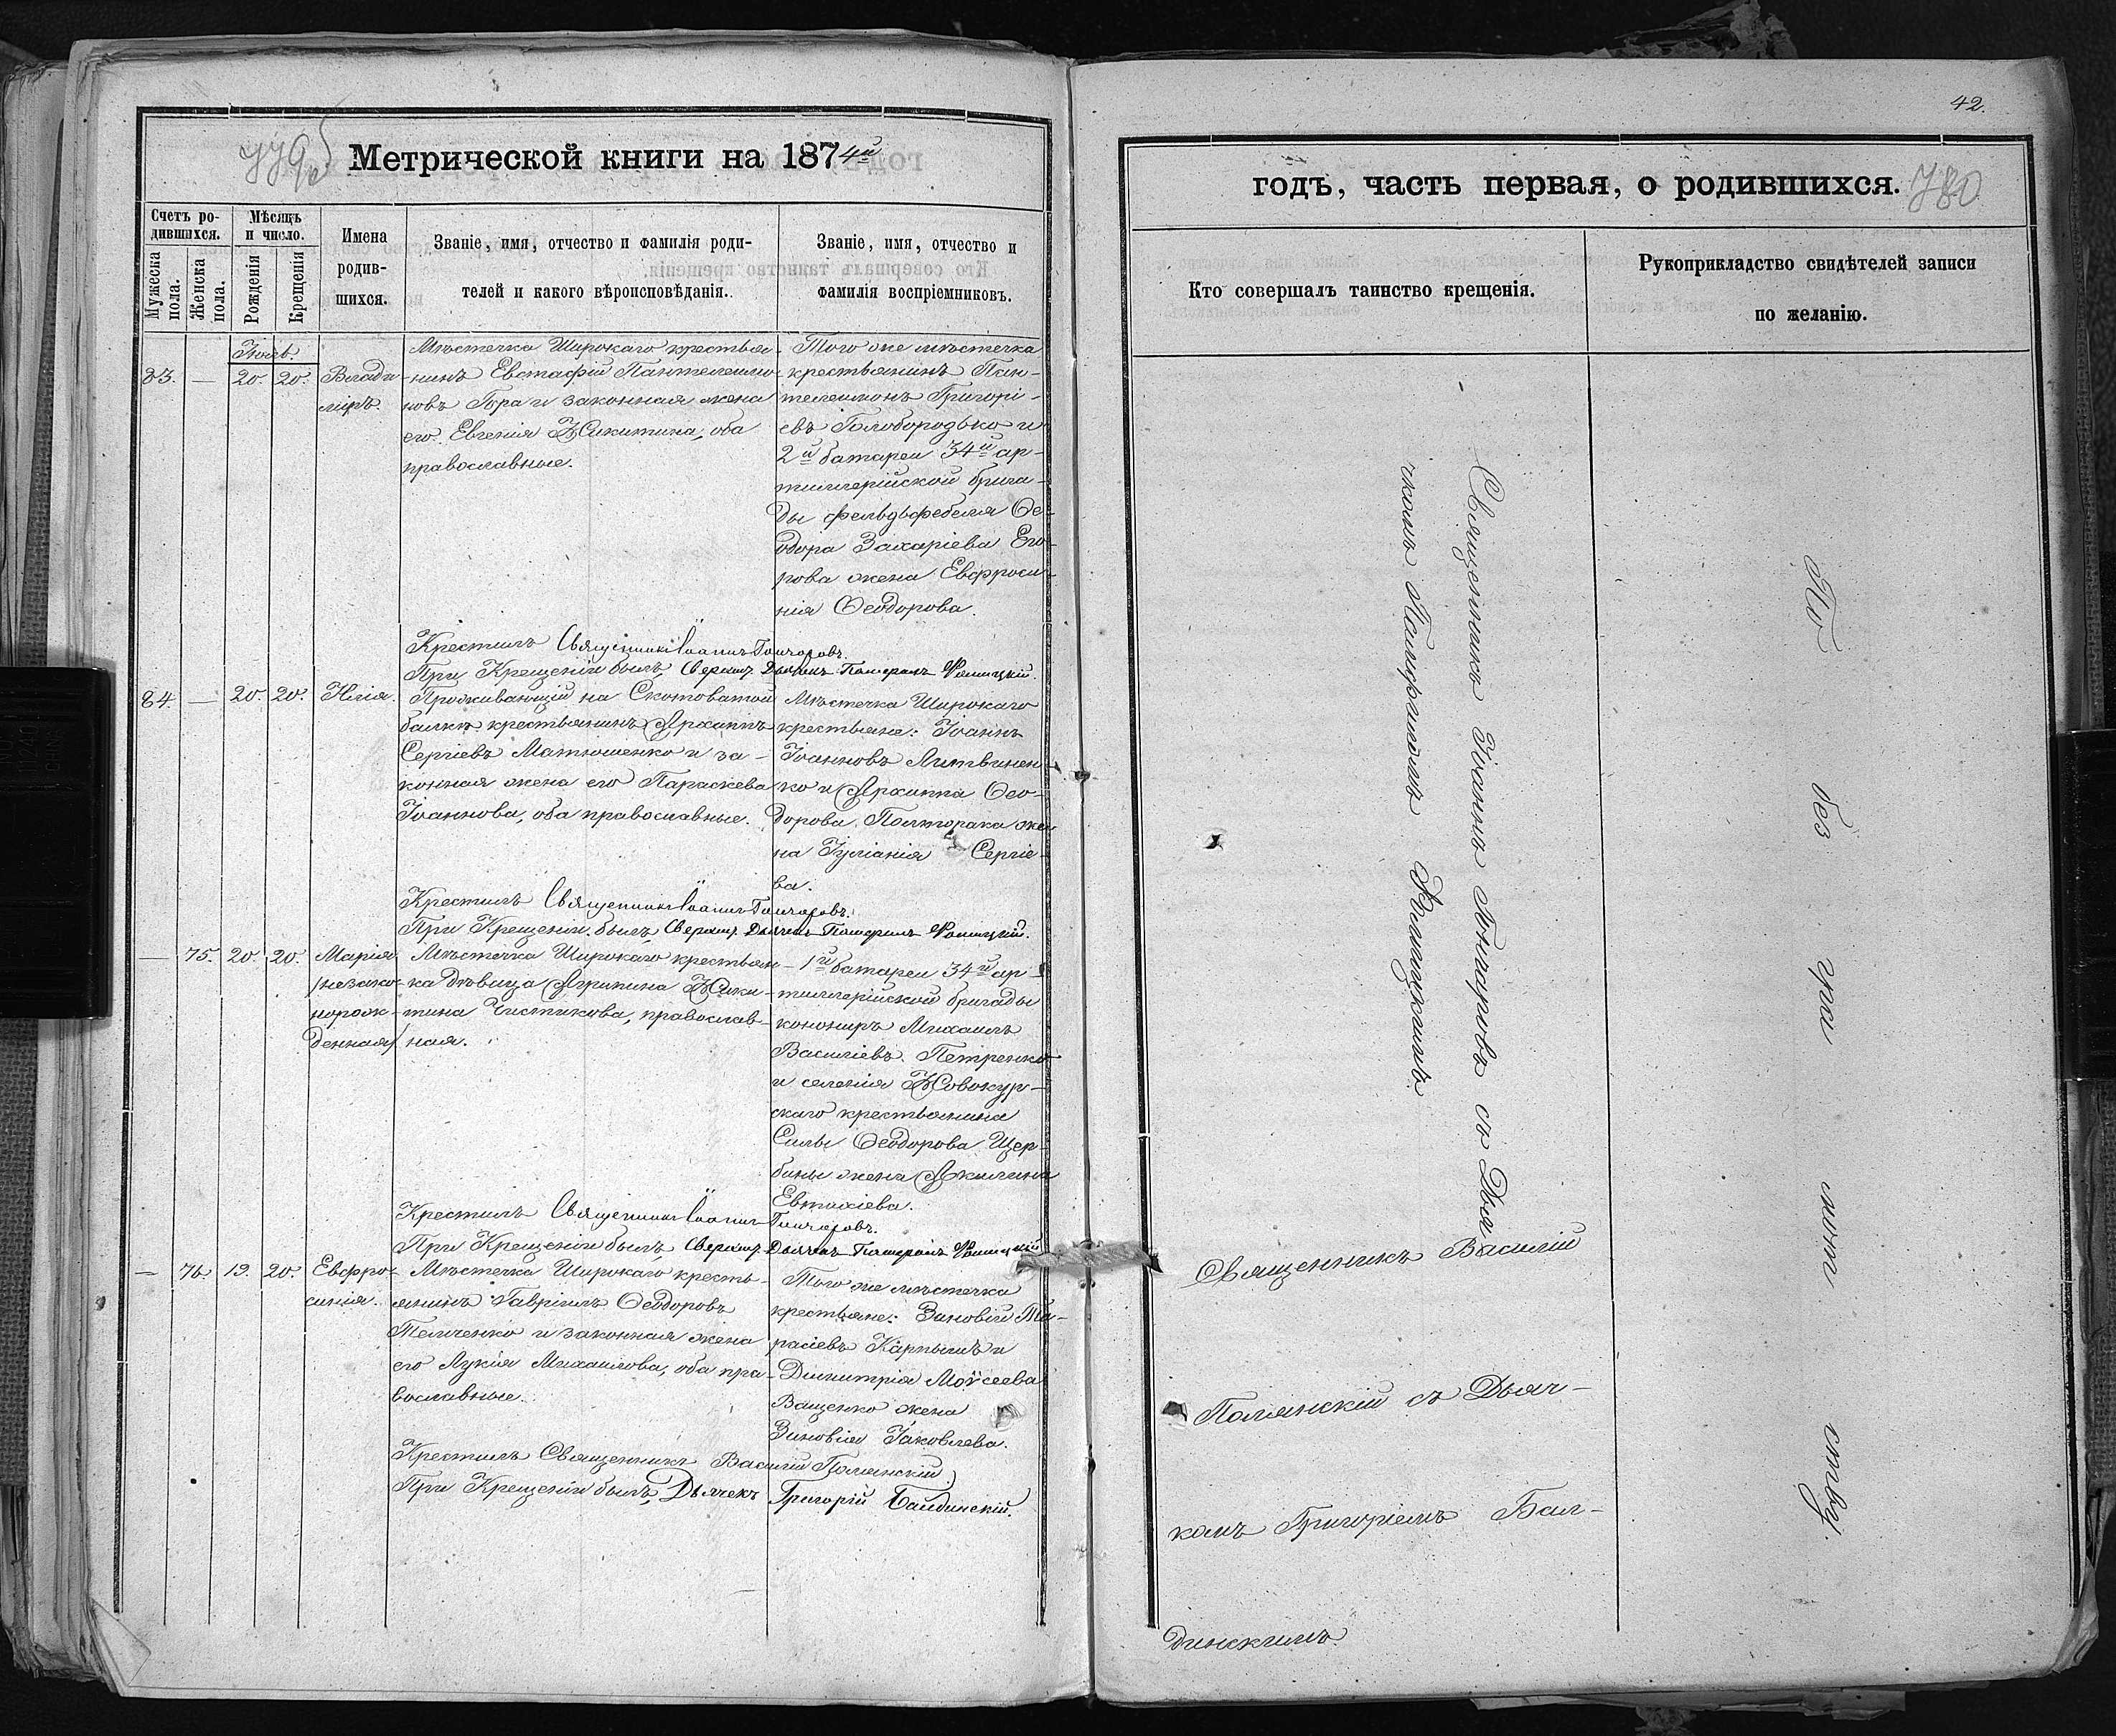 779 об
Метрической книги на 1874й
Счетъ ро-
дившихся.
Мѣсяцъ
и число.
Мужеска пола.
Женска пола.
Рожденія
Крещенія
Имена
родив-
шихся.
Званіе, имя, отчество и фамилія роди-
телей и какого вѣроисповѣданія.
Званіе, имя, отчество и
фамилія воспріемниковъ.
Іюль
83. — 20. 20. Влади-
міръ.
Мѣстечка Широкаго крестья-
нинъ Евстафій Пантелеимо-
новъ Гора и законная жена
его Евгенія Никитина, оба
православные.
Того же мѣстечка
крестьянинъ Пан-
телеимонъ Григорі-
евъ Голобородько и
2й батареи 34й ар-
тиллерійской брига-
ды фельдфебеля Ѳе-
одора Захаріева Его-
рова жена Евфроси-
нія Ѳеодорова.
Крестилъ Священникъ Іоаннъ Гончаровъ.
При Крещеніи былъ,
84. — 20. 20. Илія.
Проживающій на Скотоватой
балкѣ крестьянинъ Архиппъ
Сергіевъ Матюшенко и за-
конная жена его Параскева
Іоаннова, оба православные.
Мѣстечка Широкаго
крестьяне: Іоаннъ
Іоанновъ Литвинен-
ко и Архиппа Ѳео-
дорова Полторака же-
на Іуліанія Сергіе-
ва.
Крестилъ Священникъ Іоаннъ Гончаровъ.
При Крещеніи былъ,
— 75. 20. 20. Марія
/незако-
норож-
денная/
Мѣстечка Широкаго крестьян-
ка дѣвица Агрипина Ники-
тина Чистикова, православ-
ная.
1й батареи 34й ар-
тиллерійской бригады
кононіръ Михаилъ
Василіевъ Петренко
и селенія Новокур-
скаго крестьянина
Силы Ѳеодорова Щер-
бины жена Акилина
Евтихіева.
Крестилъ Священникъ Іоаннъ Гончаровъ.
При Крещеніи былъ,
— 76. 19. 20. Евфро-
синія.
Мѣстечка Широкаго кресть-
янинъ Гавріилъ Ѳеодоровъ
Темченко и законная жена
его Лукія Михаилова, оба пра-
вославные.
Того же мѣстечка
крестьяне: Зиновій Та-
расіевъ Карпышъ и
Димитрія Моѵсеева
Ващенко жена
Зиновія Іаковлева.
Крестилъ Священникъ Василій Полянскій
При Крещеніи былъ, Дьячекъ Григорій Балдинскій.
42.
годъ, часть первая, о родившихся. 780
Кто совершалъ таинство крещенія.
Рукоприкладство свидѣтелей записи
по желанію.
Священникъ Іоаннъ Гончаровъ съ Дья
чкомъ
Священникъ Василій
Полянскій съ Дьяч-
комъ Григоріемъ Бал-
динскимъ.